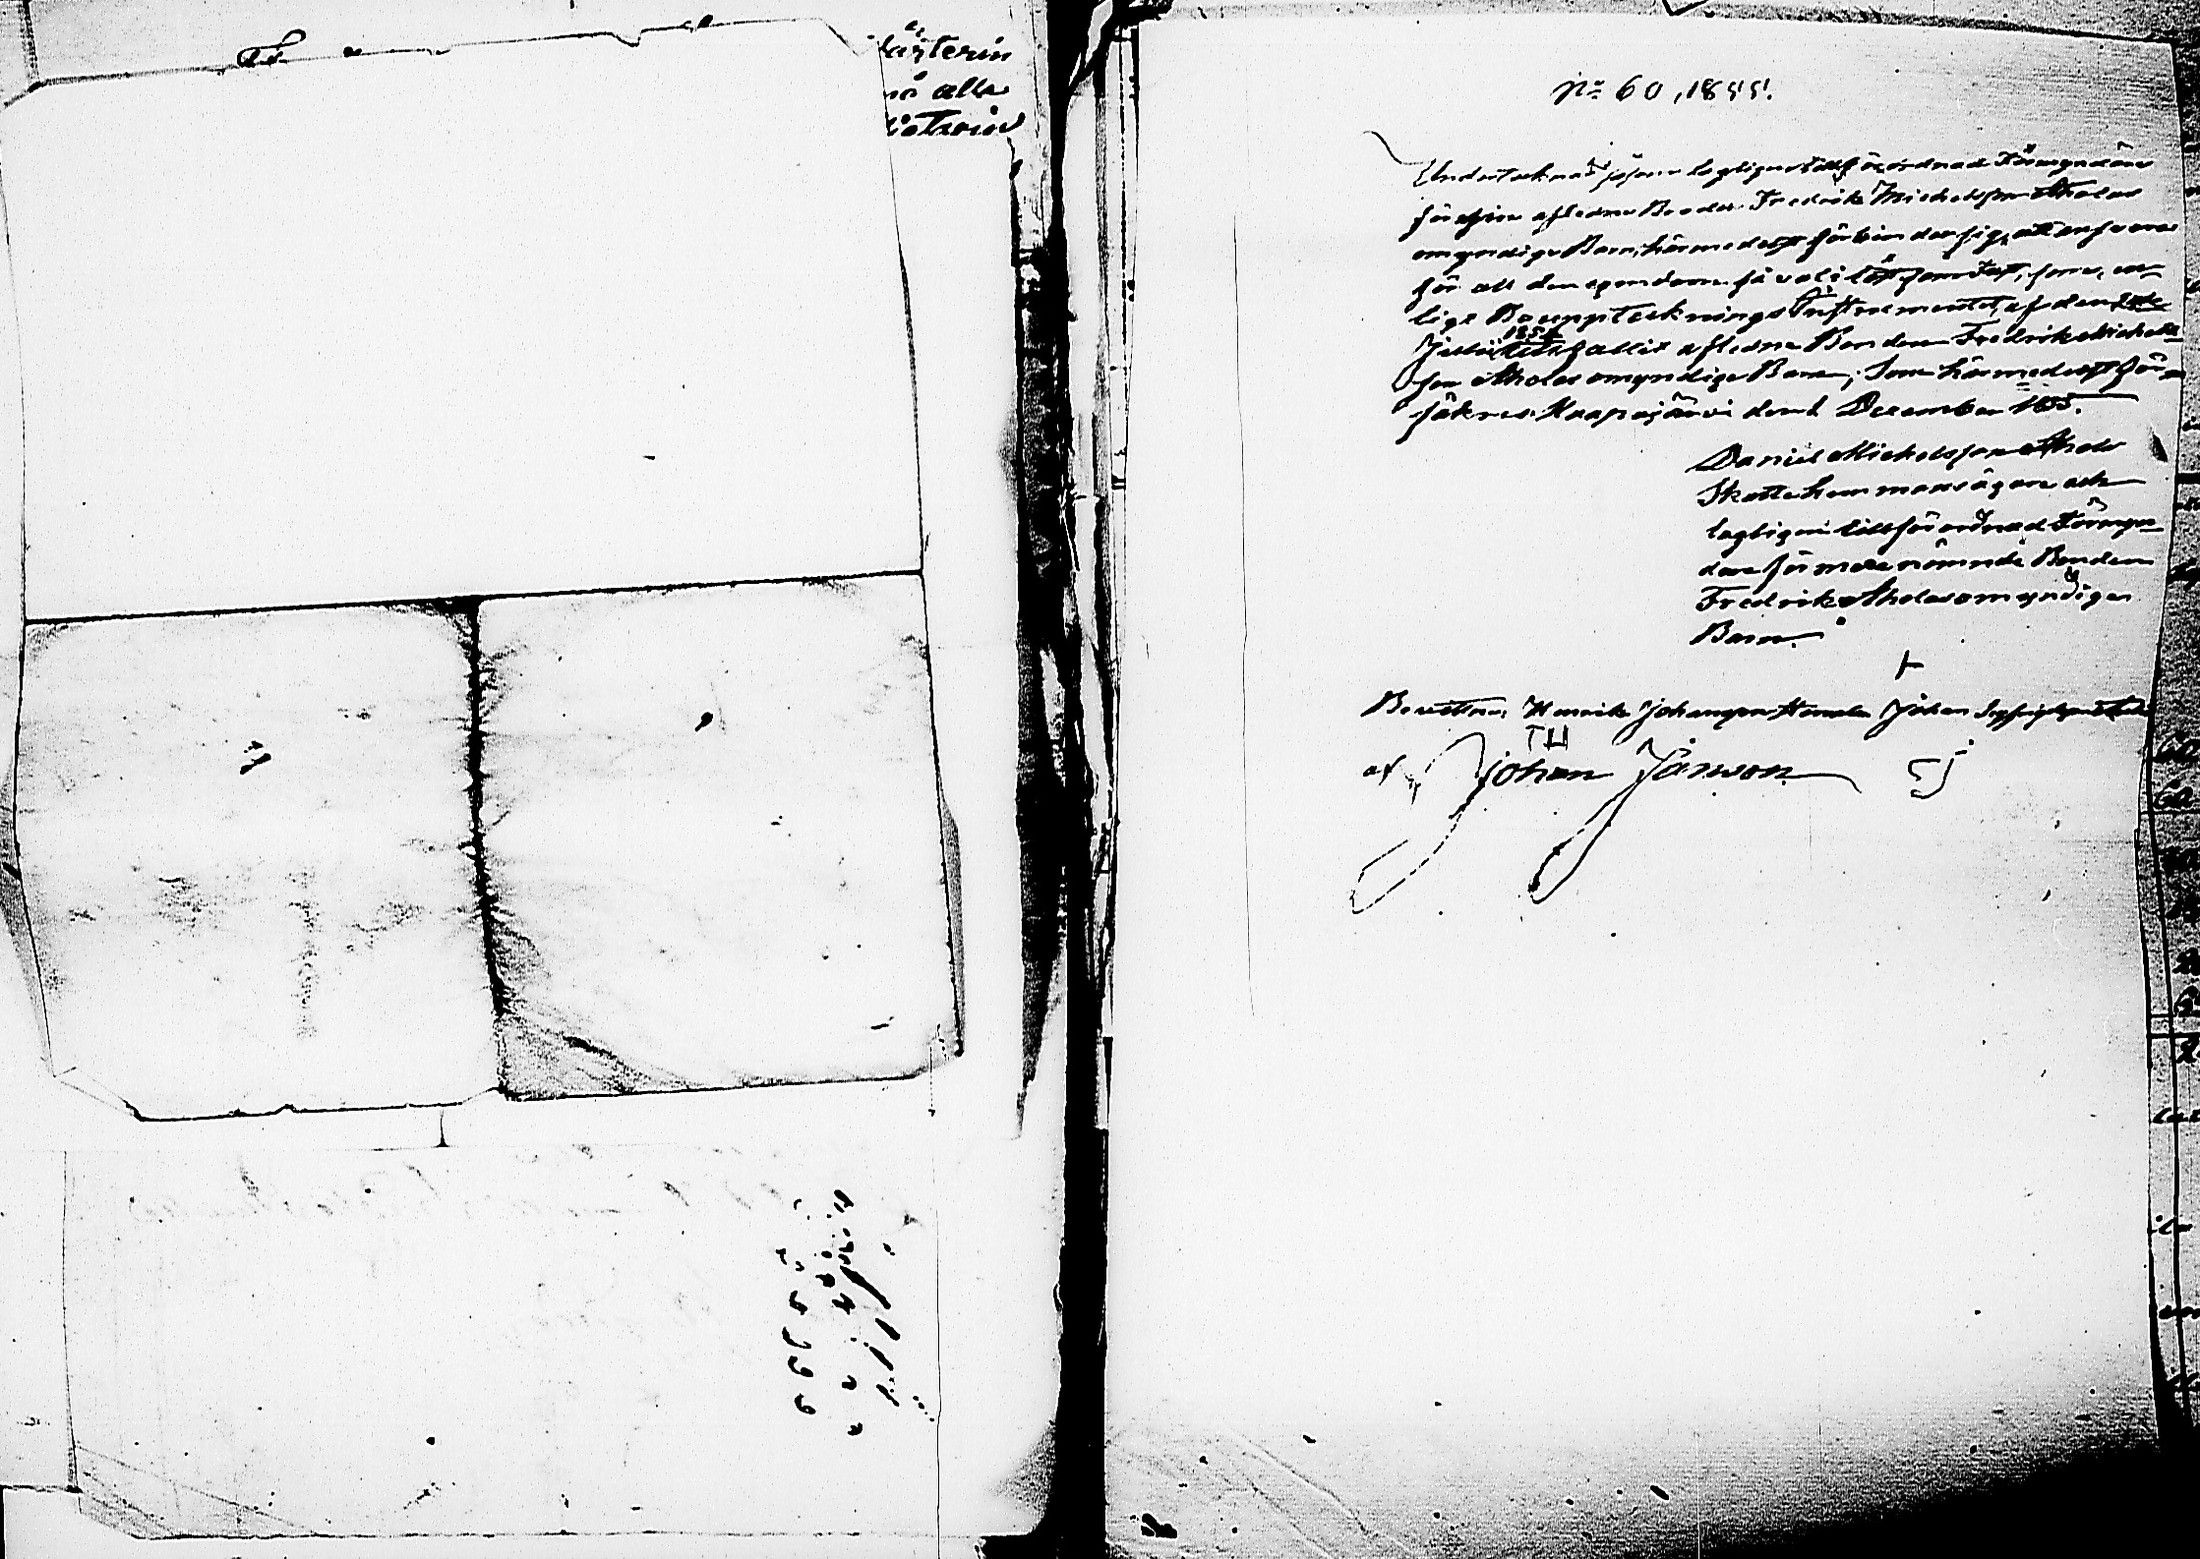 på alla
No 60, 1855.
Undertecknad såsom lagligen tillförordnad Förmyndare
för sin afledne Broder Fredrik Michelsson Aholas
omyndige Barn, härmedelst förbinder sig, att ansvara
för all den egendom så väl i löst som fast, som, en-
ligt Boupptecknings Instrumentet, af den
Julii 1854 tillfallit afledne Bonden Fredrik Michels-
son Aholas omyndige Barn; Som härmedelst för-
säkras. Haapajärvi den 1 December 1855.
Daniel Michelsson Ahola
Skattehemmansägare och
lagligen tillförordnad Förmyn-
dare för merenämnde Bonden
Fredrik Aholas omyndiga
Barn.
Bevittna, Henrik Johansson Johan
TH
af Johan Janson SJ